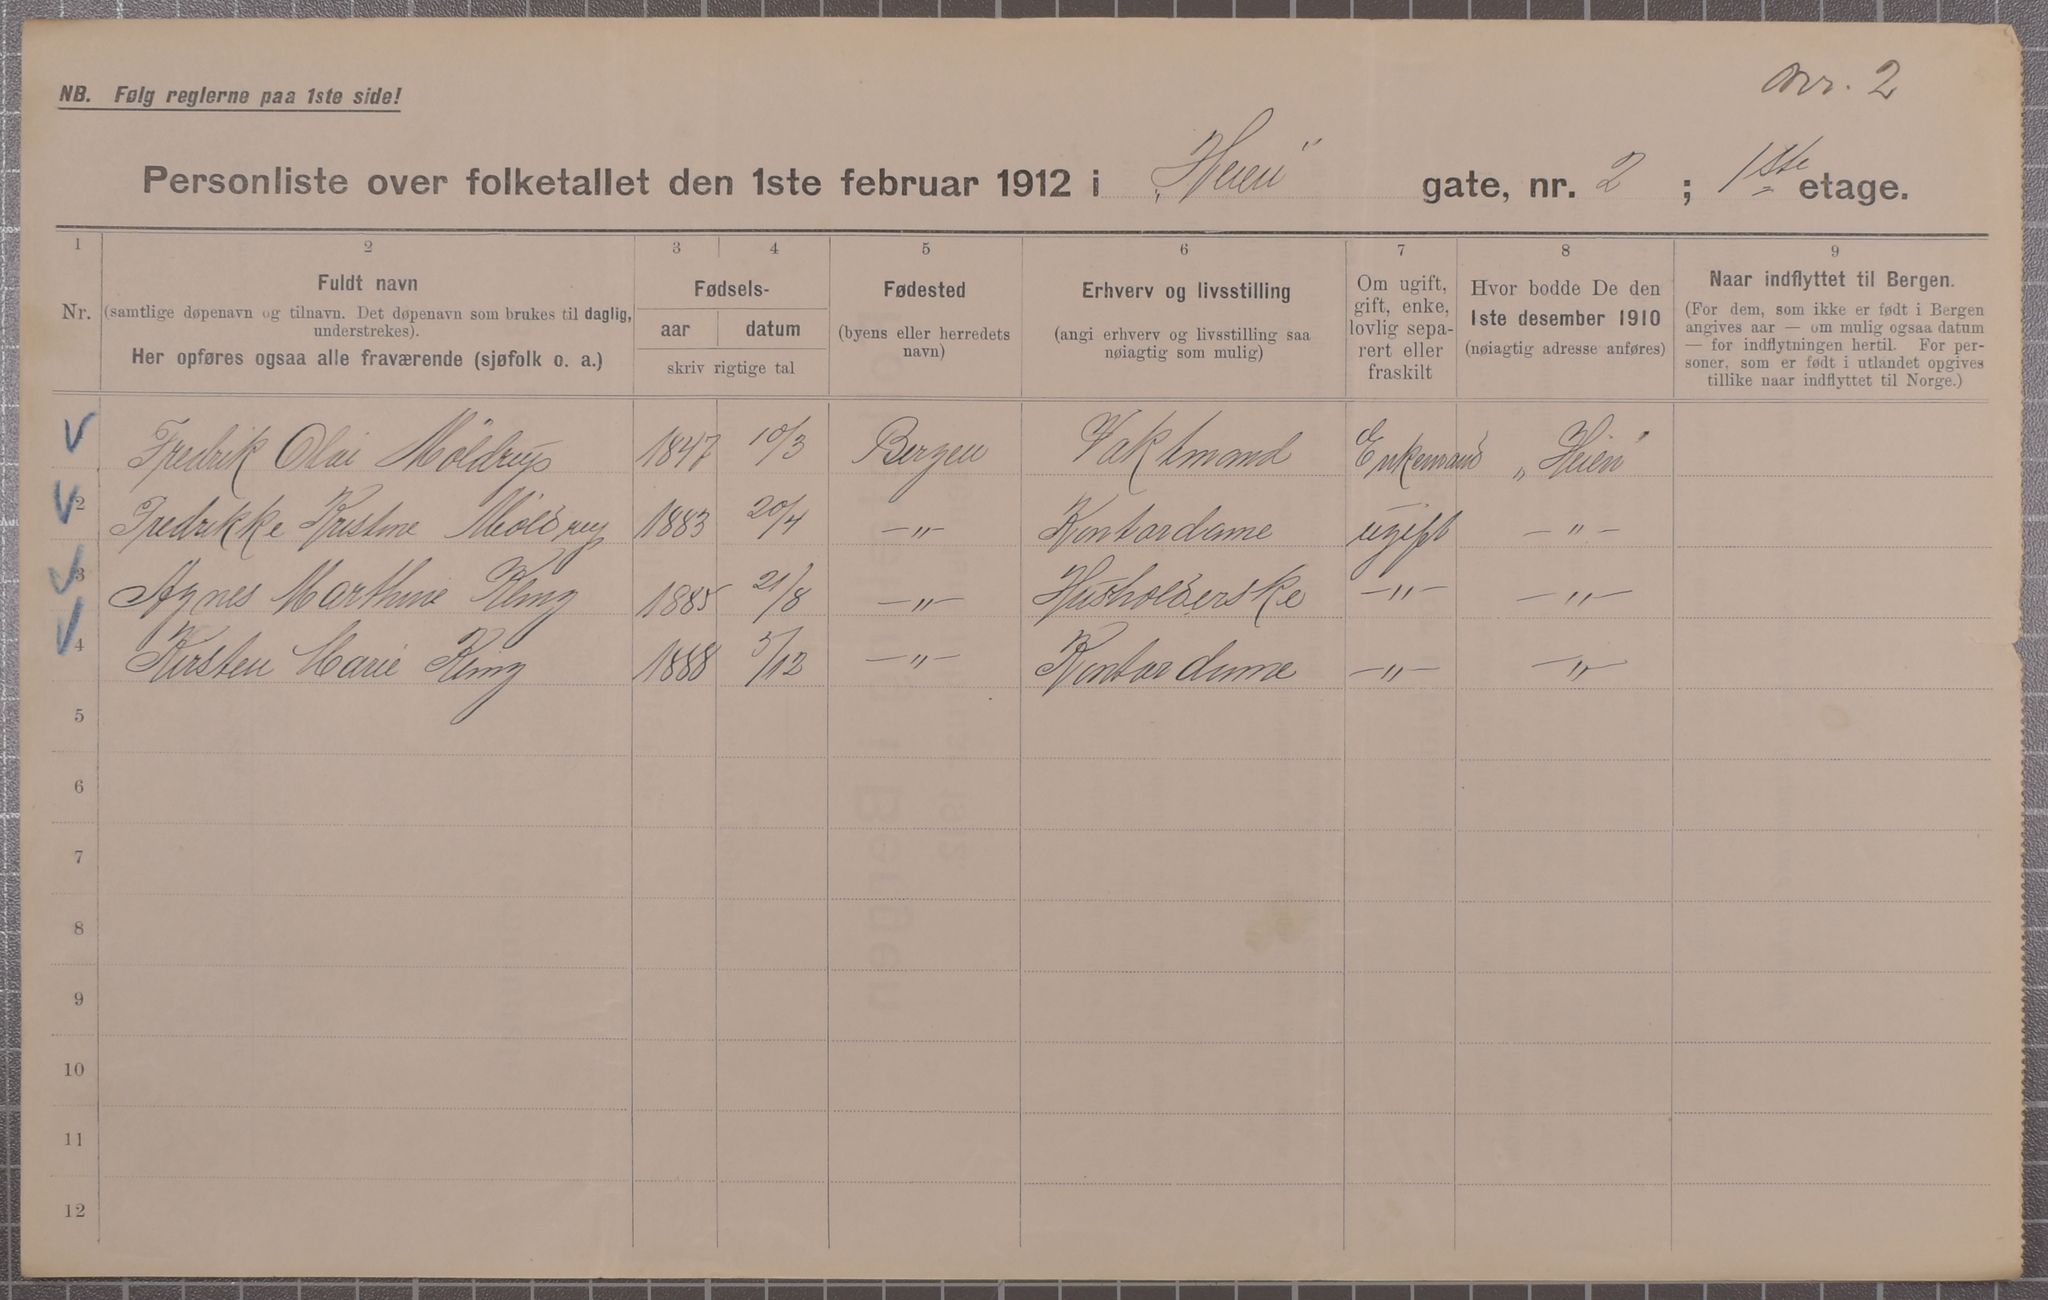 Nr. 2
NB. Følg reglerne paa 1ste side!
Personliste over folketallet den 1ste februar 1912 i „Heien" gate, nr. 2 ; 1ste etage.
1 2 3 4 5 6 7 8 9
Nr.
Fuldt navn
(samtlige døpenavn og tilnavn. Det døpenavn som brukes til daglig,
understrekes).
Her opføres ogsaa alle fraværende (sjøfolk o. a.)
Fødsels-
aar datum
skriv rigtige tal
Fødested
(byens eller herredets
navn)
Erhverv og livsstilling
(angi erhverv og livsstilling saa
nøiagtig som mulig)
Om ugift,
gift, enke,
lovlig sepa-
rert eller
fraskilt
Hvor bodde De den
1ste desember 1910
(nøiagtig adresse anføres)
Naar indflyttet til Bergen.
(For dem, som ikke er født i Bergen
angives aar — om mulig ogsaa datum
— for indflytningen hertil. For per-
soner, som er født i utlandet opgives
tillike naar indflyttet til Norge.)
Fredrik Olai Möldrup 1847 10/3 Bergen Vaktmand Enkemand „Heien"
2 Fredrikke Kristine Möldrup 1883 20/4 —„— Kontordame ugift —„—
3 Agnes Marthine Kling 1885 21/8 —„— Husholderske —„— —„—
4 Kirsten Marie Kling 1888 5/12 —„— Kontordame —„— —„—
5
6
7
8
9
10
11
12